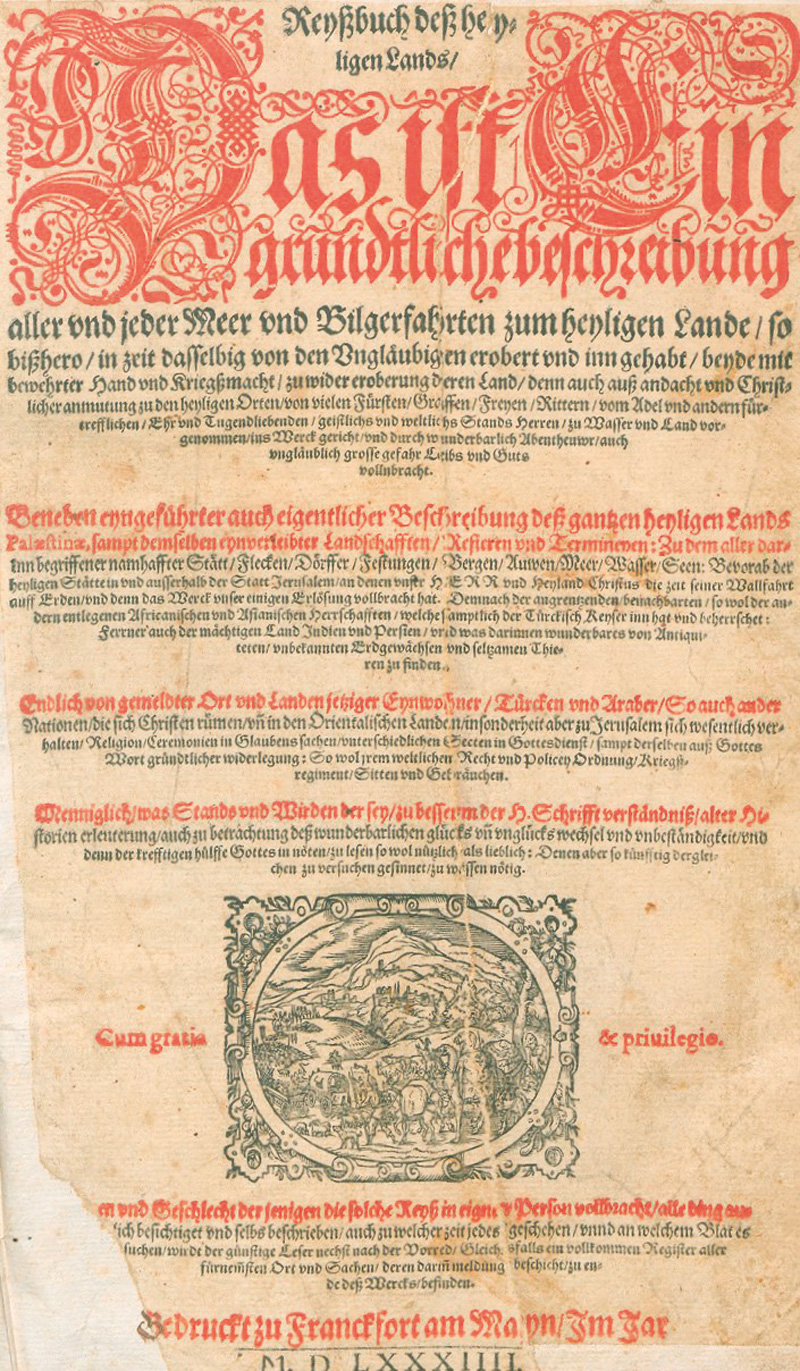 Reyßbuch deß hey-
ligen Lands/
Das ist Ein
gründtliche beschreibung
aller vnd jeder Meer vnd Bilgerfahrten zum heyligen Lande/ so
bißhero/ in zeit dasselbig von den Vngläubigen erobert vnd inn gehabt/ beyde mit
bewehrter Hand vnd Kriegßmacht/ zu wider eroberung deren Land/ denn auch auß andacht vnd Christ-
licher anmutung zu den heyligen Orten/ von vielen Fürsten/ Graffen/ Freyen/ Rittern/ vom Adel vnd andern für-
trefflichen/ Ehr vnd Tugendliebenden/ geistlichs vnd weltlichs Stands Herren/ zu Wasser vnd Land vor-
genommen/ ins Werck gericht/ vnd durch wunderbarlich Abentheuwr/ auch
vngläublich grosse gefahr Leibs vnd Guts
vollnbracht.
Beneben eyngeführter auch eigentlicher Beschreibung deß gantzen heyligen Lands
Palæstinæ, sampt demselben eynverleibter Landschafften/ Refieren vnd Termineyen: Zu dem aller dar-
inn begriffener namhaffter Stätt/ Flecken/ Dörffer/ Festungen/ Bergen/ Auwen/ Meer/ Wasser/ Seen: Bevorab der
heyligen Stätte in vnd ausserhalb der Statt Jerusalem/ an denen vnser HERR vnd Heyland Christus die zeit seiner Wallfahrt
auff Erden/ vnd denn das Werck vnser einigen Erlösung vollbracht hat. Demnach der angrentzenden/ benachbarten/ so wol der an-
dern entlegenen Africanischen vnd Asianischen Herrschafften/ welche samptlich der Türckisch Keyser inn hat vnd beherrschet:
Ferrner auch der mächtigen Land Indien vnd Persien/ vnd was darinnen wunderbares von Antiqui-
teten/ vnbekannten Erdgewächsen vnd seltzamen Thie-
ren zu finden.
Endlich von gemeldter Ort vnd Landen jetziger Eynwohner/ Türcken vnd Araber/ So auch ander
Nationen/ die sich Christen rümen/ vñ in den Orientalischen Landen/ insonderheit aber zu Jerusalem sich wesentlich ver-
halten/ Religion/ Ceremonien in Glaubens sachen/ vnterschiedlichen Secten in Gottesdienst/ sampt derselben auß Gottes
Wort gründtlicher widerlegung: So wol jrem weltlichen Recht vnd Policey Ordnung/ Kriegß-
regiment/ Sitten vnd Gebräuchen.
Menniglich/ was Stands vnd Wirden der sey/ zu besserm der H. Schrifft verständniß/ alter Hi-
storien erleuterung/ auch zu betrachtung deß wunderbarlichen glücks vñ vnglücks wechsel vnd vnbeständigkeit/ vnd
denn der krefftigen hülffe Gottes in nöten/ zu lesen so wol nützlich als lieblich: Denen aber so künfftig derglei-
chen zu versuchen gesinnet/ zu wissen nötig.
Cum gratia & priuilegio.
en vnd Geschlecht der jenigen die solche Reyß in eigner Person vollbracht/ alle ding
ich besichtiget vnd selbs beschrieben/ auch zu welcher zeit jedes geschehen/ vnnd an welchem Blat es
suchen/ wirdt der günstige Leser nechst nach der Vorred/ Gleichsfalls ein vollkommen Register aller
fürnemsten Ort vnd Sachen/ deren dariñ meldung beschicht/ zu en-
de deß Wercks/ befinden.
Gedruckt zu Franckfort am Mayn/ Im Jar
M. D LXXXIIII.